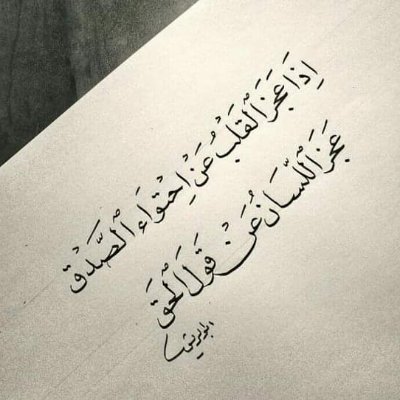 إِذَا عَجَزَ ٱلقَلبُ عَنْ اِحْتِوَاءِ ٱلصِّدْق
عَجَزَ ٱللِّسَانُ عَنْ قَولِ ٱلحَقِّ